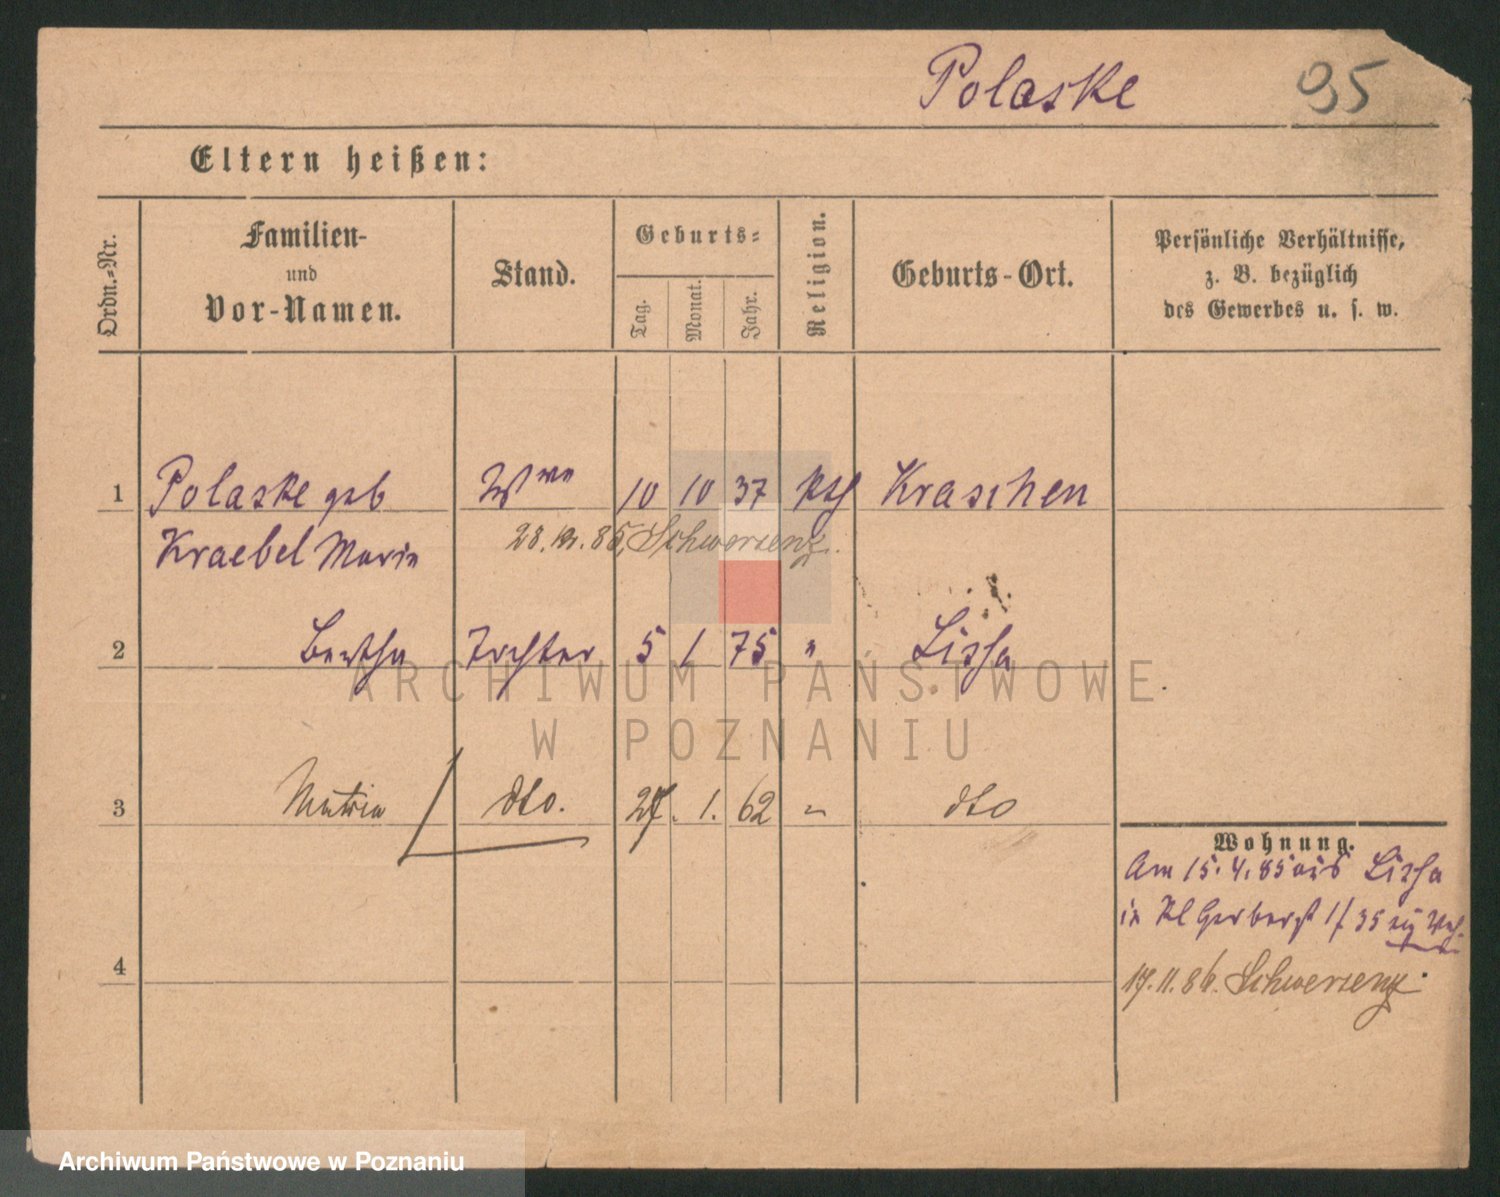 Polaske 95
Eltern heißen:
Ordn.-Nr.
Familien-
und
Vor-Namen.
Stand.
Geburts-
Tag.
Monat.
Jahr.
Religion.
Geburts-Ort.
Persönliche Verhältnisse,
z. B. bezüglich
des Gewerbes u. s. w.
1 Polaske geb Wwe 10 10 37 kth Kraschen
Kraebel Marie 28. 85, Schwersenz.
2 Bertha Tochter 5 1 75 " Lissa
3 dto. 27. 1. 62 " dto
Wohnung.
Am 15. 4. 85 aus Lissa
in Kl Gerberst
17. 11. 86. Schwersenz.
4
ARCHIWUM PAŃSTWOWE
W POZNANIU
Archiwum Państwowe w Poznaniu